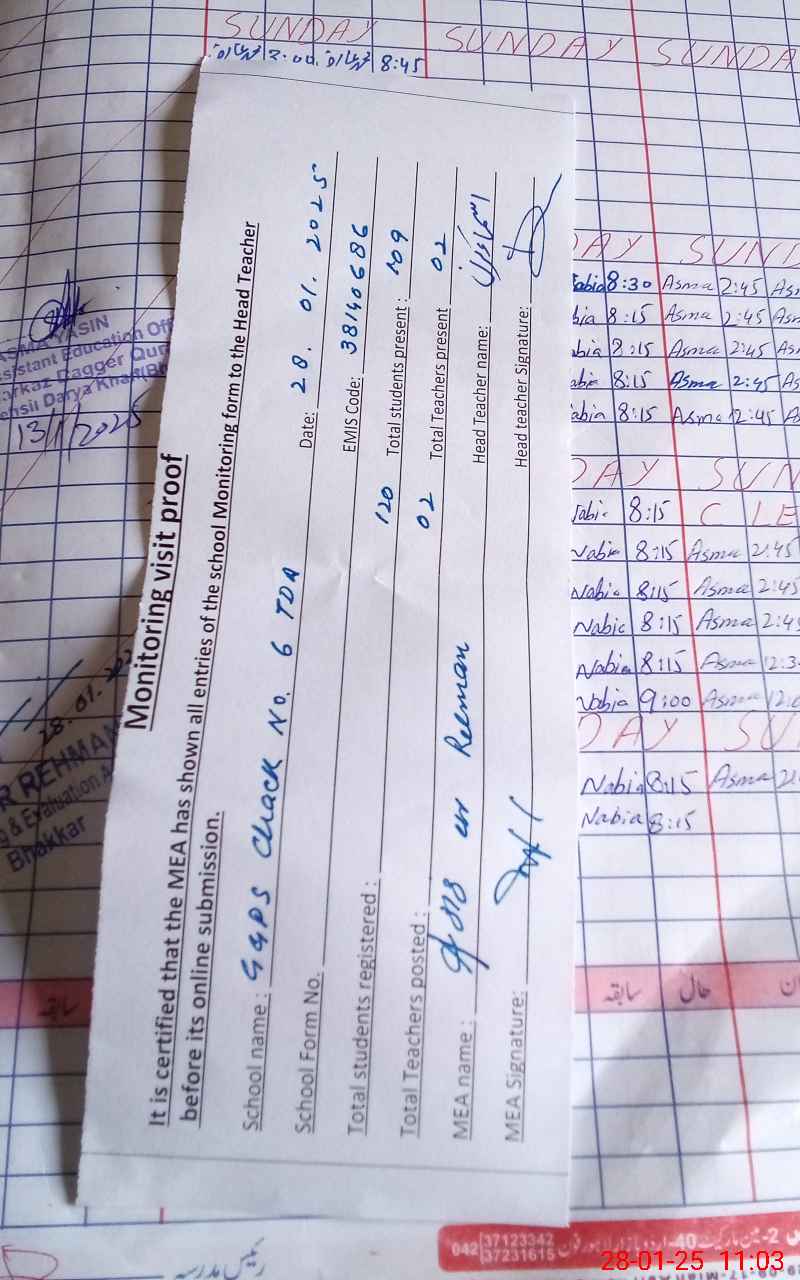 SUNDAY SUNDAY SUNDA
8:45
Monitoring visit proof
It is certified that the MEA has shown all entries of the school Monitoring form to the Head Teacher
before its online submission.
School name: GGPS Chack No. 6 TDA Date: 28.01.2025
School Form No. EMIS Code: 38140686
Total students registered: 120 Total students present: 109
Total Teachers posted: 02 Total Teachers present 02
MEA name: ur Rehman Head Teacher name:
MEA Signature: Head teacher Signature:
ASMA YASIN
ssistant Education Off
arkaz Dagger Qur
ehsil Darya Khan (Bh
13/1/2025
28.01.202
R REHMAN
g & Evaluation A
Bhakkar
DAY SUND
Nabia 8:30 Asma 2:45 Asm
bia 8:15 Asma 2:45 As
abia 8:15 Asma 2:45 As
abia 8:15 Asma 2:45 As
abia 8:15 Asma 12:45 As
DAY SUN
Nabia 8:15 C LE
Nabia 8:15 Asma 2:45
Nabia 8:15 Asma 2:45
Nabia 8:15 Asma 2:45
Nabia 8:15 Asma 12:3
Nabia 9:00 Asma 12:0
DAY SU
Nabia 8:15 Asma 2:
Nabia 8:15
سابقہ سابقہ حال
رئیس مدرسہ
042 37123342
37231615
28-01-25 11:03